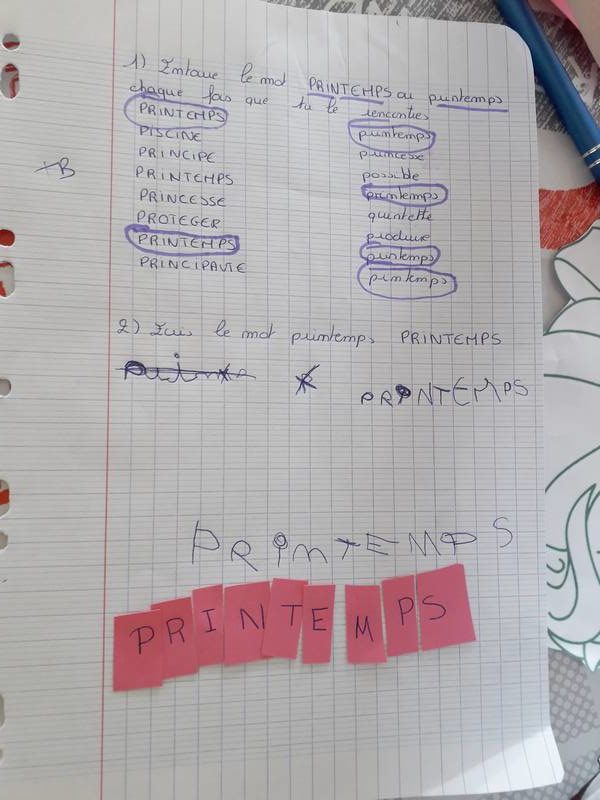 1) Entoure le mot PRINTEMPS ou printemps
chaque fois que tu le rencontres
PRINTEMPS
PISCINE
PRINCIPE
PRINTEMPS
PRINCESSE
PROTEGER
PRINTEMPS
PRINCIPAUTE
printemps
princesse
possible
printemps
quintette
produire
printemps
printemps
TB
2) Ecris le mot printemps PRINTEMPS
PRINTEMPS
PRINTEMPS
PRINTEMPS